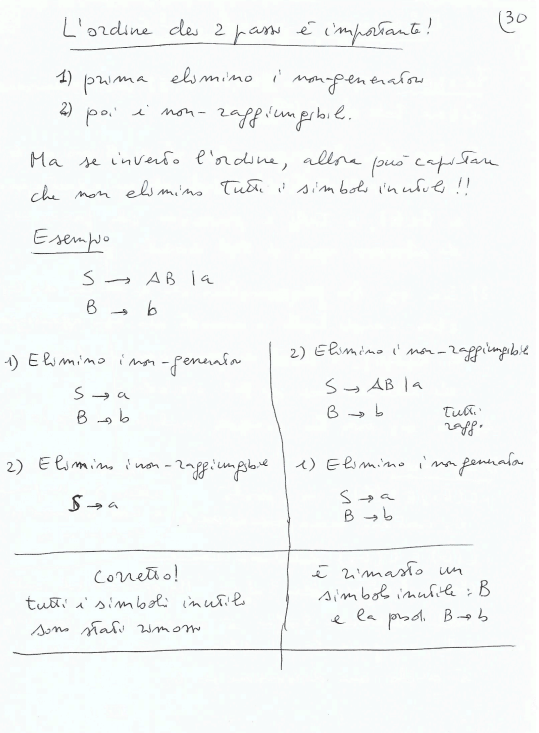 L'ordine dei 2 passi è importante!
(30
1) prima elimino i non-generatori
2) poi i non-raggiungibili.
Ma se inverto l'ordine, allora può capitare
che non elimino Tutti i simboli inutili !!
Esempio
S → AB | a
B → b
1) Elimino i non-generatori
S → a
B → b
2) Elimino i non-raggiungibili
S → a
Corretto!
tutti i simboli inutili
sono stati rimossi
2) Elimino i non-raggiungibili
S → AB | a
B → b Tutti
ragg.
1) Elimino i non generatori
S → a
B → b
è rimasto un
simbolo inutile : B
e la prod. B → b